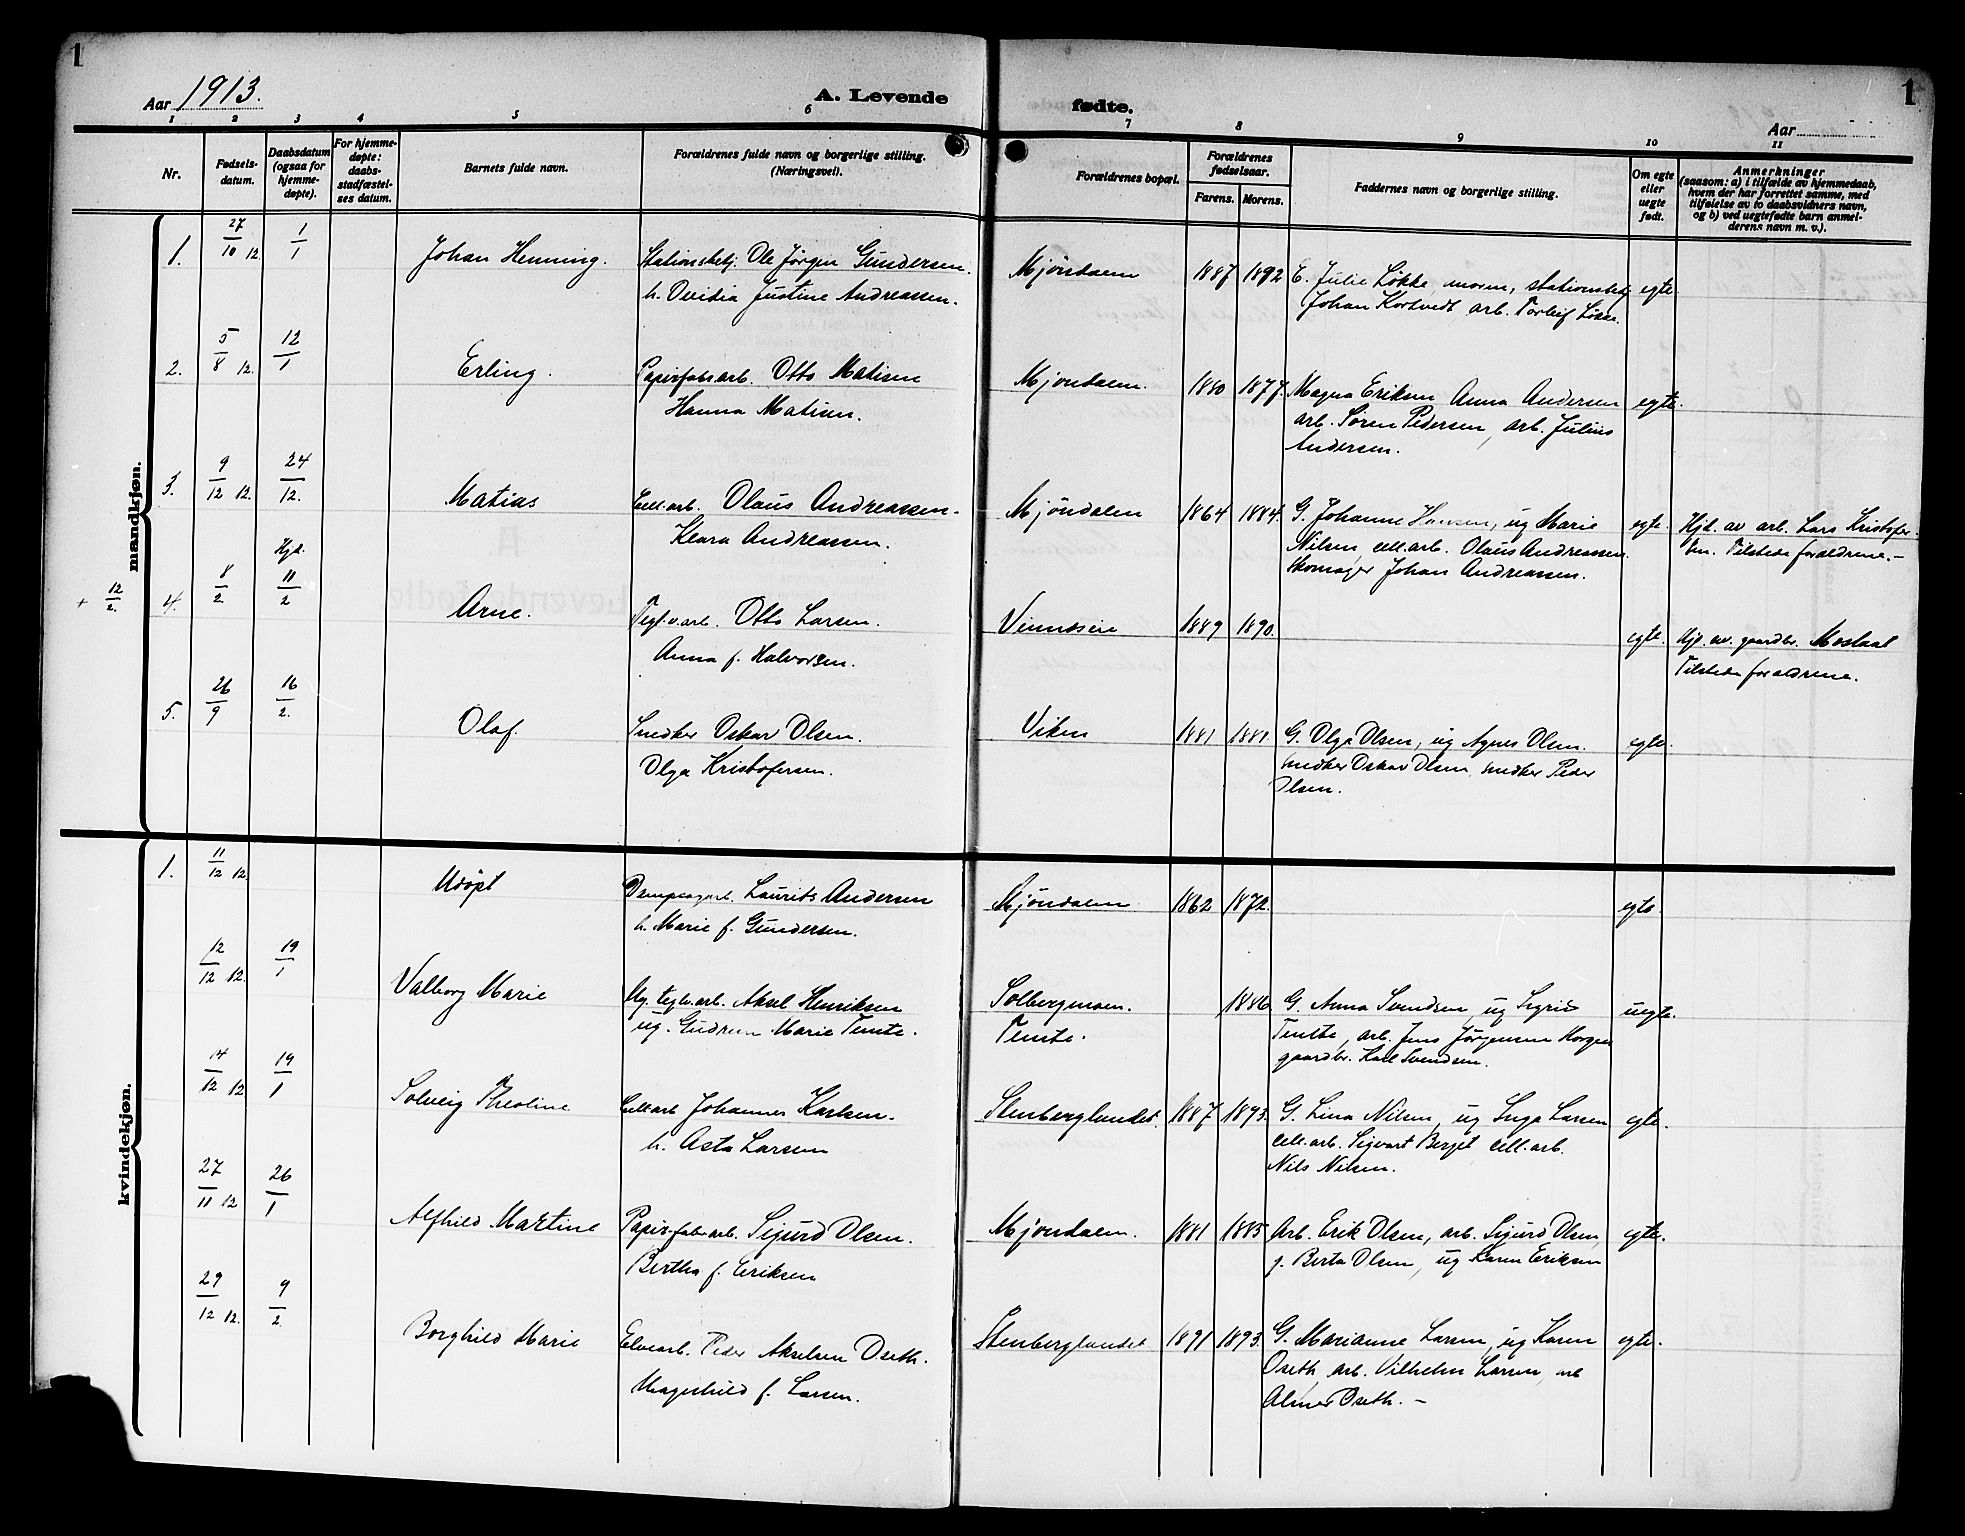 1
Aar 1913.
A. Levende
fødte.
Aar
1
1 2 3 4 5 6 7 8 9 10 11
Nr.
Fødsels-
datum.
Daabsdatum
(ogsaa for
hjemme-
døpte).
For hjemme-
døpte:
daabs-
stadfæstel-
ses datum.
Barnets fulde navn.
Forældrenes fulde navn og borgerlige stilling.
(Næringsvei).
Forældrenes bopæl.
Forældrenes
fødselsaar.
Farens. Morens.
Faddernes navn og borgerlige stilling.
Om egte
eller
uegte
født.
Anmerkninger
(saasom: a) i tilfælde av hjemmedaab,
hvem der har forrettet samme, med
tilføielse av to daabsvidners navn,
og b) ved uegtefødte barn anmel-
derens navn m. v.).
mandkjøn.
1. 27/10 12. 1/1 Johan Henning. Stationsbetj. Ole Jörgen Gundersen. Mjöndalen 1887 1892 E. Julie Løkke, moren, stationsbetj. egte.
h. Ovidia Justine Andreassen. Johan Kortvedt arb. Torleif Løkke.
2. 5/8 12. 12/1 Erling. Papirfabr.arb. Otto Matisen Mjöndalen. 1880 1877. Magna Eriksen Anna Andersen egte.
Hanna Matisen. arb. Søren Pedersen, arb. Julius
Andersen.
3. 9/12 12. 24/12. Hjd. Matias Cell.arb. Olaus Andreassen. Mjöndalen 1864 1884. G. Johanne Hansen, ug Marie egte. Hjd. av arb. Lars Kristofer-
Klara Andreassen. Nilsen, cell.arb. Olaus Andreassen sen. Tilstede forældrene.-
Skomager Johan Andreassen.
+ 12/2. 4. 8/2. 11/2 Arne. Tegl.v.arb. Otto Larsen. 1889 1890. egte. Hjd. av. gaardbr.
Anna f. Halvorsen. Tilstede forældrene.
5. 26/9 16/2. Olaf. Snedker Oskar Olsen. Viken 1881 1881 G. Olga Olsen, ug Agnes Olsen. egte.
Olga Kristofersen. snedker Oskar Olsen, snedker Peder
Olsen.
kvindekjøn.
1. 11/12 12. Udöpt Dampsagarb. Laurits Andersen Mjöndalen. 1862 1872. egte.
h. Marie f. Gundersen.
12/12 12. 19/1 Valborg Marie Ug. tegl.v.arb. Aksel Henriksen Solbergmoen. 1886. G. Anna Svendsen, ug Sigrid uegte.
ug. Gudrun Marie Temte. Temte. Temte, arb. Jens Jørgensen Horgen
gaardbr. Karl Svendsen.
14/12 12 19/1 Solveig Theoline Cell.arb Johannes Karlsen. Stenberglandet. 1887 1893. G. Lina Nilsen, ug Inga Larsen egte.
h. Asta Larsen cell.arb. Sigvart Berget cell.arb.
Nils Nilsen.
27/11 12 26/1 Alfhild Martine Papirfabr.arb. Sigurd Olsen. Mjöndalen. 1881 1885 Arb. Erik Olsen, arb. Sigurd Olsen, egte.
Bertha f. Eriksen g. Berta Olsen, ug Karen Eriksen
29/12 12. 9/2. Borghild Marie Elvearb. Peder Akselsen Oseth. Stenberglandet 1891 1893. G. Marianne Larsen, ug Karen egte.
Magnhild f. Larsen. Oseth, arb. Vilhelm Larsen, arb
Oseth. –